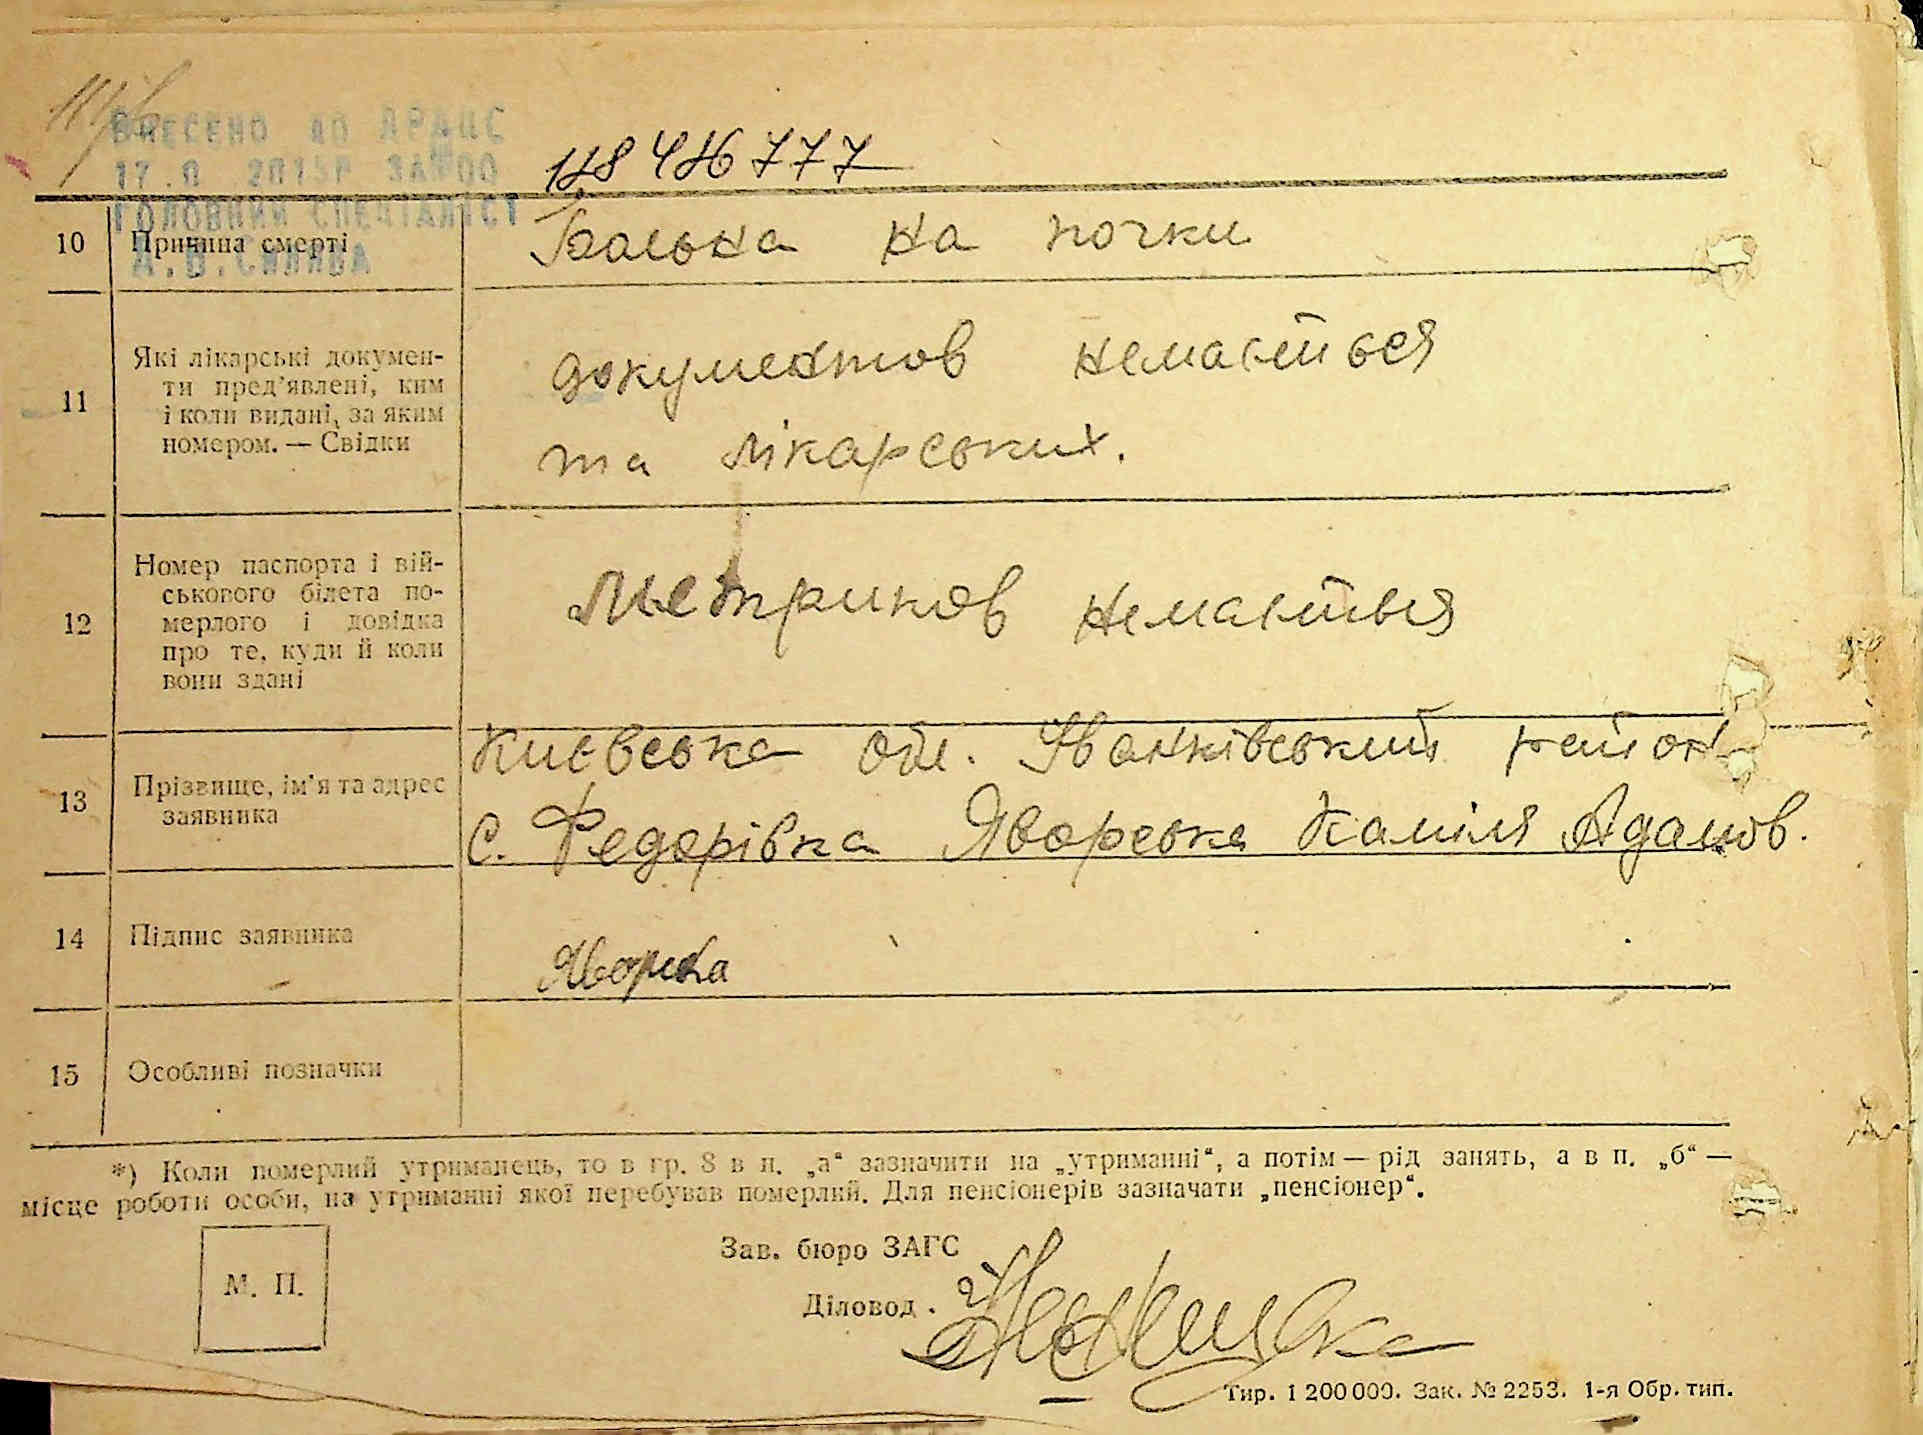 ВНЕСЕНО ДО ДРАЦС
ГОЛОВНИЙ СПЕЦІАЛІСТ
10 Причина смерті Больна на почки
11 Які лікарські докумен-
ти пред'явлені, ким
і коли видані, за яким
номером. — Свідки
документов немається
та лікарських.
12 Номер паспорта і вій-
ськового білета по-
мерлого і довідка
про те, куди й коли
вони здані
Метриков немається
13 Прізвище, ім'я та адрес
заявника
Києвська обл. Іванківський район
с. Федорівка Яворська Каміля Адамов.
14 Підпис заявника Яворska
15 Особливі позначки
*) Коли померлий утриманець, то в гр. 8 в п. „а“ зазначити на „утриманні“, а потім — рід занять, а в п. „б“ —
місце роботи особи, на утриманні якої перебував померлий. Для пенсіонерів зазначати „пенсіонер“.
М. П.
Зав. бюро ЗАГС
Діловод.
Тир. 1 200 000. Зак. № 2253. 1-я Обр. тип.